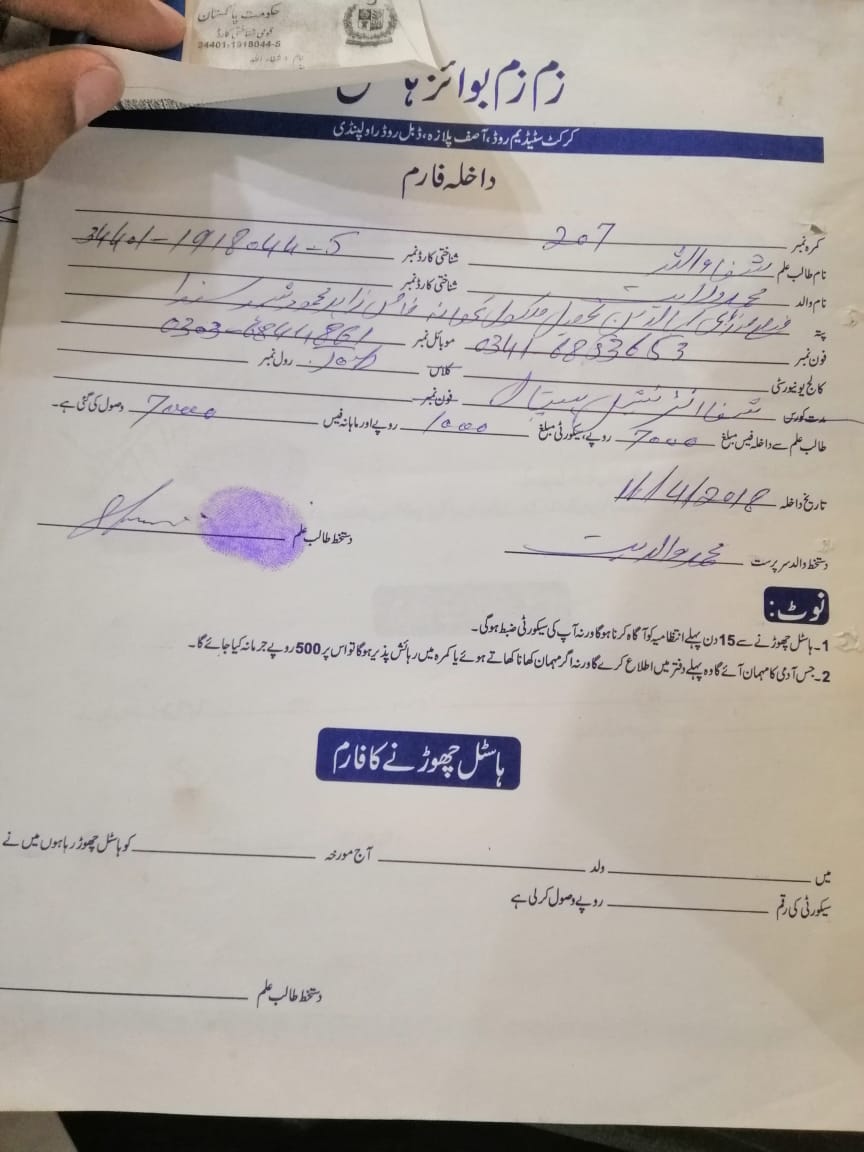 حکومت پاکستان
قومی شناختی کارڈ
34401-1918044-5
زم زم بوائز
کرکٹ سٹیڈیم روڈ، آصف پلازہ، ڈبل روڈ راولپنڈی
داخلہ فارم
کمرہ نمبر 207
نام طالب علم شفاء اللہ شناختی کارڈ نمبر 34401-1918044-5
نام والد محمد ولایت شناختی کارڈ نمبر
پتہ
فون نمبر 0341 6853653 موبائل نمبر 0303-6844861
کالج یونیورسٹی کلاس رول نمبر
مدت کورس شفا انٹرنیشنل ہسپتال فون نمبر
طالب علم سے داخلہ فیس مبلغ 7000 روپے، سیکورٹی مبلغ 1000 روپے اور ماہانہ فیس 7000 وصول کی گئی ہے۔
تاریخ داخلہ 16/4/2018
دستخط والد سرپرست محمد ولایت دستخط طالب علم
نوٹ:
1۔ ہاسٹل چھوڑنے سے 15 دن پہلے انتظامیہ کو آگاہ کرنا ہوگا ورنہ آپ کی سیکورٹی ضبط ہوگی۔
2۔ جس آدمی کا مہمان آئے گا وہ پہلے دفتر میں اطلاع کرے گا ورنہ اگر مہمان کھانا کھاتے ہوئے یا کمرہ میں رہائش پذیر ہوگا تو اس پر 500 روپے جرمانہ کیا جائے گا۔
ہاسٹل چھوڑنے کا فارم
میں ولد آج مورخہ کو ہاسٹل چھوڑ رہا ہوں میں نے
سیکورٹی کی رقم روپے وصول کر لی ہے
دستخط طالب علم